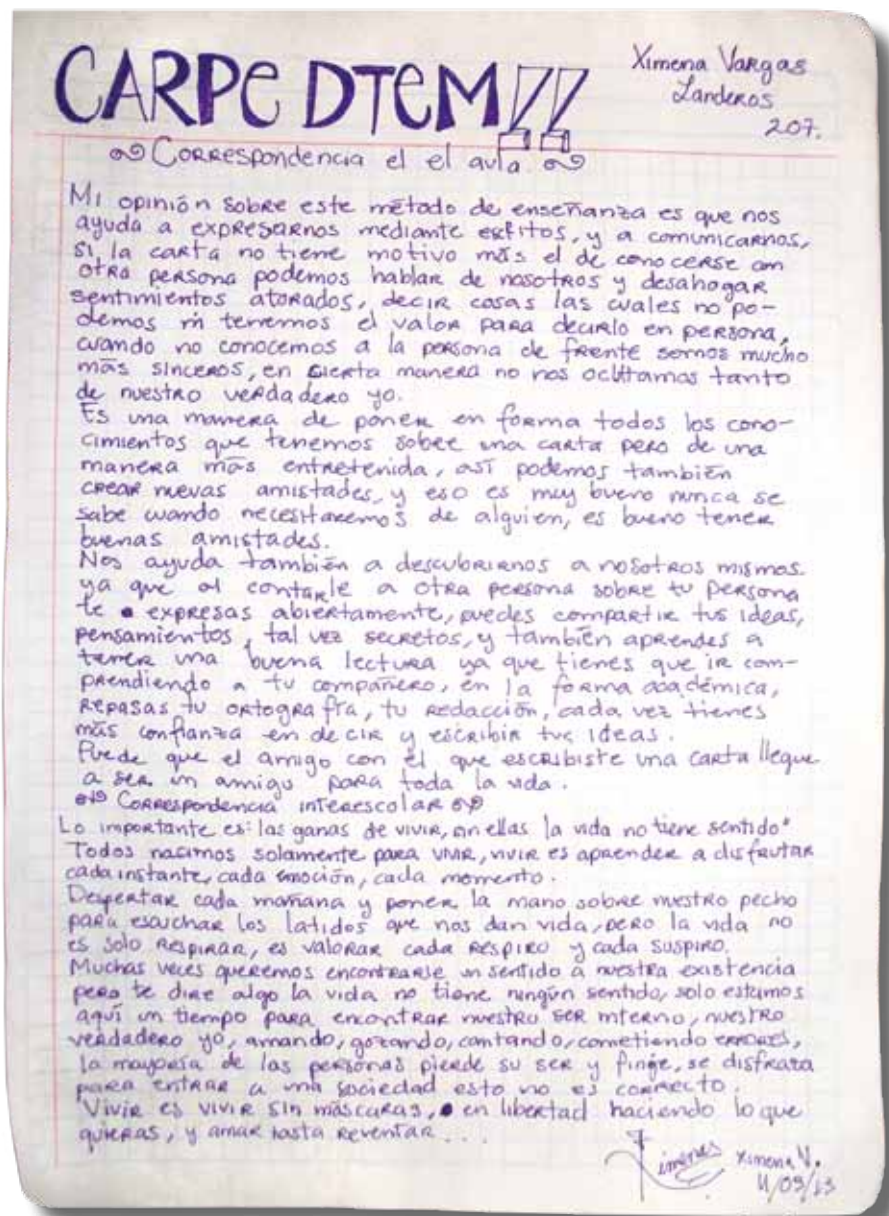 CARPE DIEM!!
Ximena Vargas
Landeros
207.
Correspondencia el el aula
Mi opinión sobre este método de enseñanza es que nos
ayuda a expresarnos mediante esfitos, y a comunicarnos,
si la carta no tiene motivo más el de conocerse con
otra persona podemos hablar de nosotros y desahogar
sentimientos atorados, decir cosas las cuales no po-
demos ni tenemos el valor para decirlo en persona,
cuando no conocemos a la persona de frente somos mucho
más sinceros, en cierta manera no nos ocultamos tanto
de nuestro verdadero yo.
Es una manera de poner en forma todos los cono-
cimientos que tenemos sobre una carta pero de una
manera más entretenida, así podemos también
crear nuevas amistades, y eso es muy bueno nunca se
sabe cuando necesitaremos de alguien, es bueno tener
buenas amistades.
Nos ayuda también a descubrirnos a nosotros mismos.
ya que al contarle a otra persona sobre tu persona
te expresas abiertamente, puedes compartir tus ideas,
pensamientos, tal vez secretos, y también aprendes a
tener una buena lectura ya que tienes que ir com-
prendiendo a tu compañero, en la forma académica,
repasas tu ortografía, tu redacción, cada vez tienes
más confianza en decir y escribir tus ideas.
Puede que el amigo con el que escribiste una carta llegue
a ser un amigo para toda la vida.
Correspondencia interescolar
Lo importante es: las ganas de vivir, sin ellas la vida no tiene sentido"
Todos nacimos solamente para vivir, vivir es aprender a disfrutar
cada instante, cada emoción, cada momento.
Despertar cada mañana y poner la mano sobre nuestro pecho
para escuchar los latidos que nos dan vida, pero la vida no
es solo respirar, es valorar cada respiro y cada suspiro.
Muchas veces queremos encontrarle un sentido a nuestra existencia
pero te dire algo la vida no tiene ningún sentido, solo estamos
aquí un tiempo para encontrar nuestro ser interno, nuestro
verdadero yo, amando, gozando, cantando, cometiendo errores,
la mayoria de las personas pierde su ser y finje, se disfraza
para entrar a una sociedad esto no es correcto.
Vivir es vivir sin máscaras, en libertad haciendo lo que
quieras, y amar hasta reventar...
Ximena V.
11/03/13